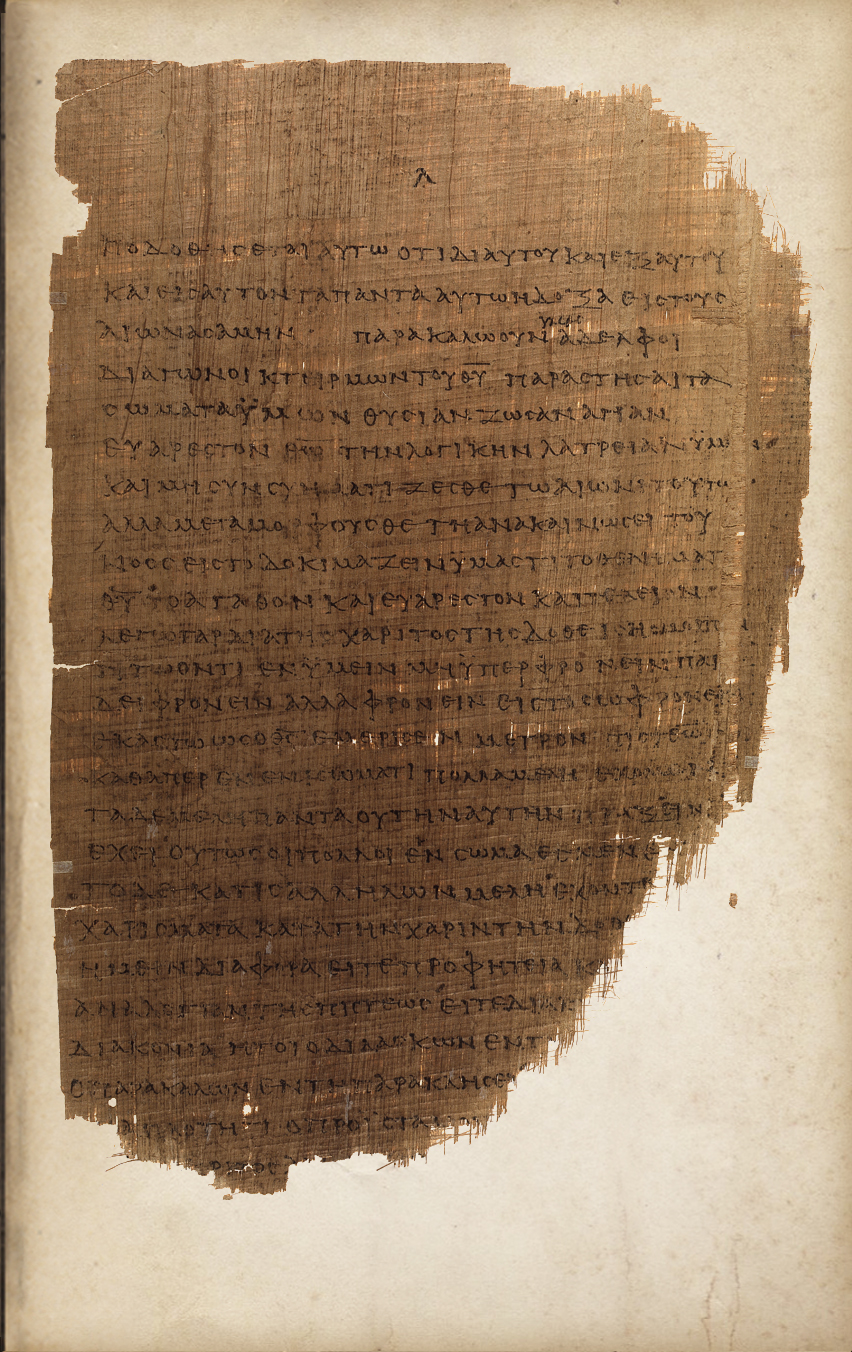 λ
ποδοθησεται αυτω οτι δι αυτου και εξ αυτου
και εις αυτον τα παντα αυτω η δοξα εις τους
αιωνας αμην παρακαλω ουν ϋμας αδελφοι
δια των οικτειρμων του θ̅υ̅ παραστησαι τα
σωματα ϋμων θυσιαν ζωσαν αγιαν
ευαρεστον θ̅ω̅ την λογικην λατρειαν ϋμω
και μη συνσχηματιζεσθε τω αιωνι τουτω
αλλα μεταμορφουσθε τη ανακαινωσει του
νοος εις το δοκιμαζειν ϋμας τι το θεληματ
θ̅υ̅ το αγαθον και ευαρεστον και τελειον
λεγω γαρ δια της χαριτος της δοθεισης μοι π
τι τω οντι εν ϋμειν μη ϋπερφρονειν παρ
δει φρονειν αλλα φρονειν εις το σωφρονει
εκαστω ως ο θ̅ς̅ εμερισεν μετρον πιστεως
καθαπερ εν ενι σωματι πολλα μελη εχομεν
τα δε μελη παντα ου την αυτην πραξιν
εχει ουτως οι πολλοι εν σωμα εσμεν ε
το δε κατ εις αλληλων μελη εχοντ
χαρισματα κατα την χαριν την δο
ημειν διαφορα ειτε προφητεια κ
αναλογιαν της πιστεως ειτε διακ
διακονια ητοι ο διδασκων εν τ
ο παρακαλων εν τη παρακλησε
απλοτητι ο προϊσταμ